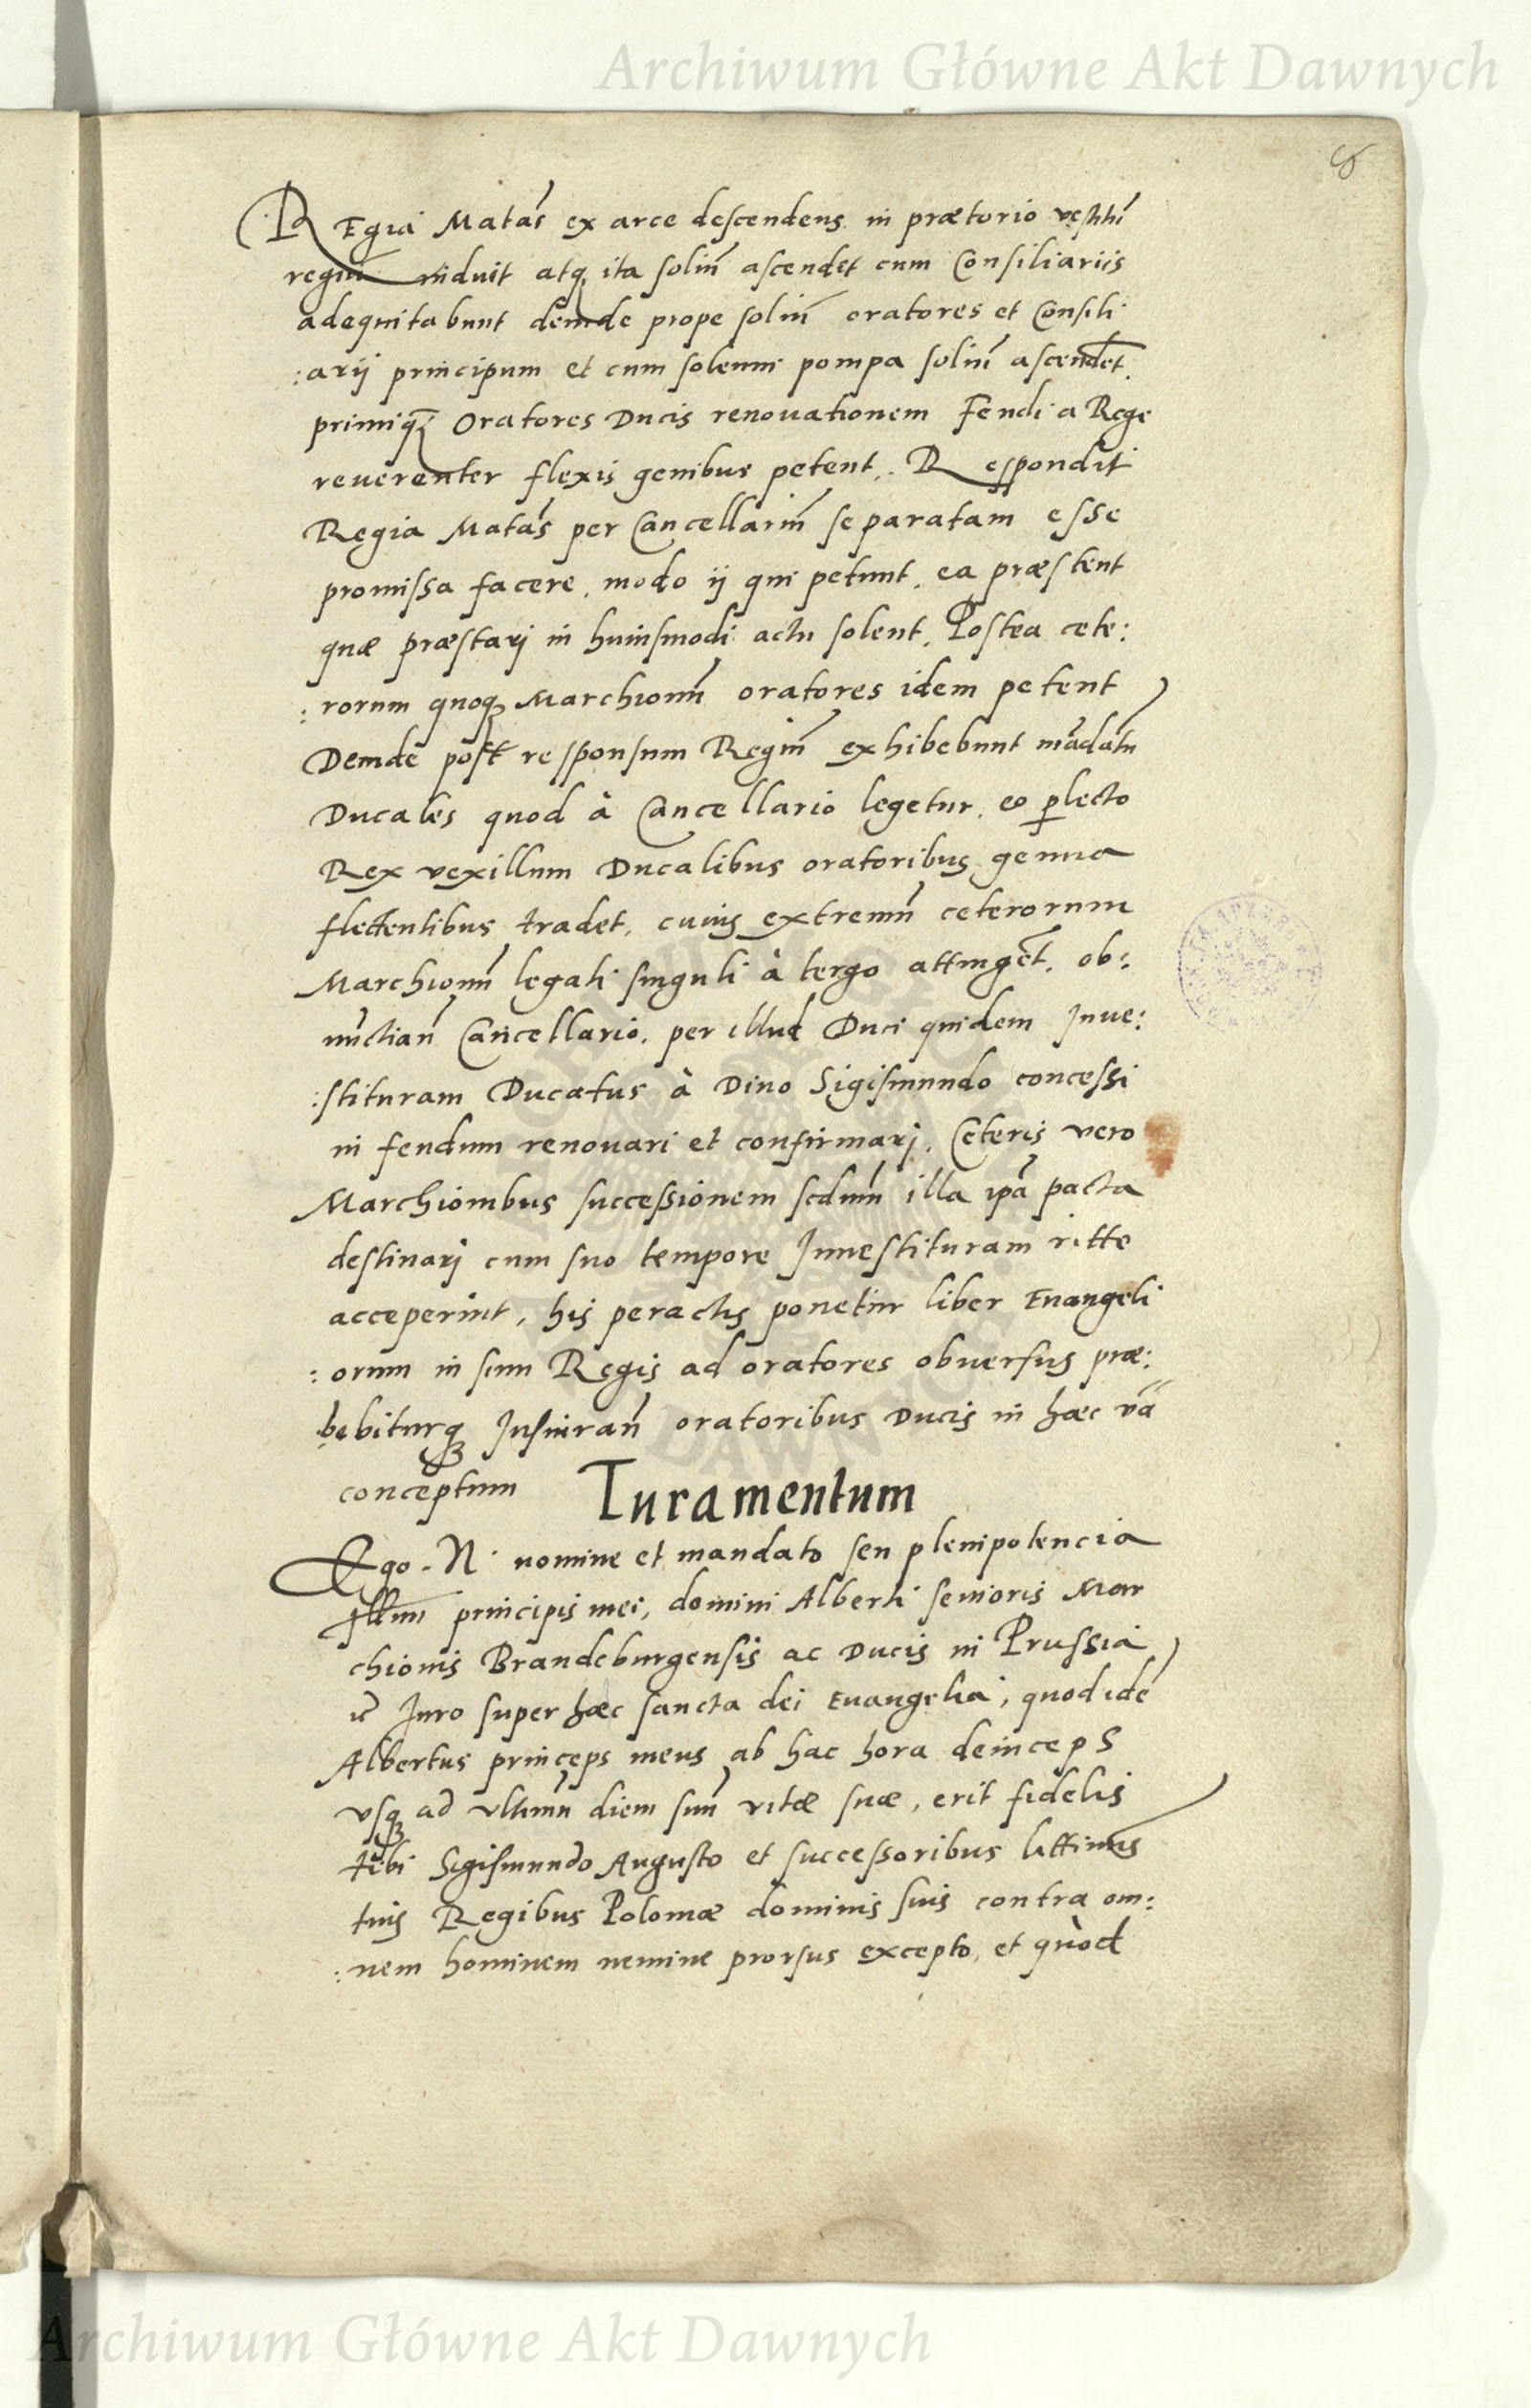 Archiwum Główne Akt Dawnych
REgia Matas ex arce descendens in prætorio vestitũ
regiũ induit atq ita soliũ ascendet cum Consiliariis
adequitabunt deinde prope soliũ oratores et Consili
:arij principum et cum solenni pompa soliũ ascendẽt.
primiq Oratores Ducis renouationem Feudi a Rege
reuerenter flexis genibus petent. Respondit
Regia Matas per Cancellariũ se paratam esse
promissa facere, modo ij qui petunt, ea præstent
quæ præstarj in huiusmodi actu solent. Postea cete:
:rorum quoq Marchionũ oratores idem petent
Deinde post responsum Regiũ exhibebunt mãdatũ
Ducales quod à Cancellario legetur, eo plecto
Rex vexillum Ducalibus oratoribus genua
flectentibus tradet, cuius extremũ ceterorum
Marchionũ legati singuli à tergo attingẽt. ob:
nũctiañ Cancellario, per illud Duci quidem Inue:
:stituram Ducatus à Diuo Sigismundo concessi
in feudum renouari et confirmarj. Ceteris vero
Marchionibus successionem scdum illa ipã pacta
destinarj cum suo tempore Inuestituram ritte
acceperint, his peractis ponetur liber Euangeli
:orum in sinu Regis ad oratores obuersus præ:
bebiturq Iusiurañ oratoribus Ducis in hæc vã
conceptum
Iuramentum
Ego .N. nomine et mandato seu plenipotencia
Illmi principis mei, domini Alberti senioris Mar
chionis Brandeburgensis ac Ducis in Prussia
Iuro super hæc sancta dei Euangelia, quod idẽ
Albertus princeps meus ab hac hora deinceps
vsq ad vltimũ diem suũ vitæ suæ, erit fidelis
tibi Sigismundo Augusto et successoribus littimis
tuis Regibus Poloniæ dominis suis contra om:
:nem hominem nemine prorsus excepto, et quòd
Archiwum Główne Akt Dawnych